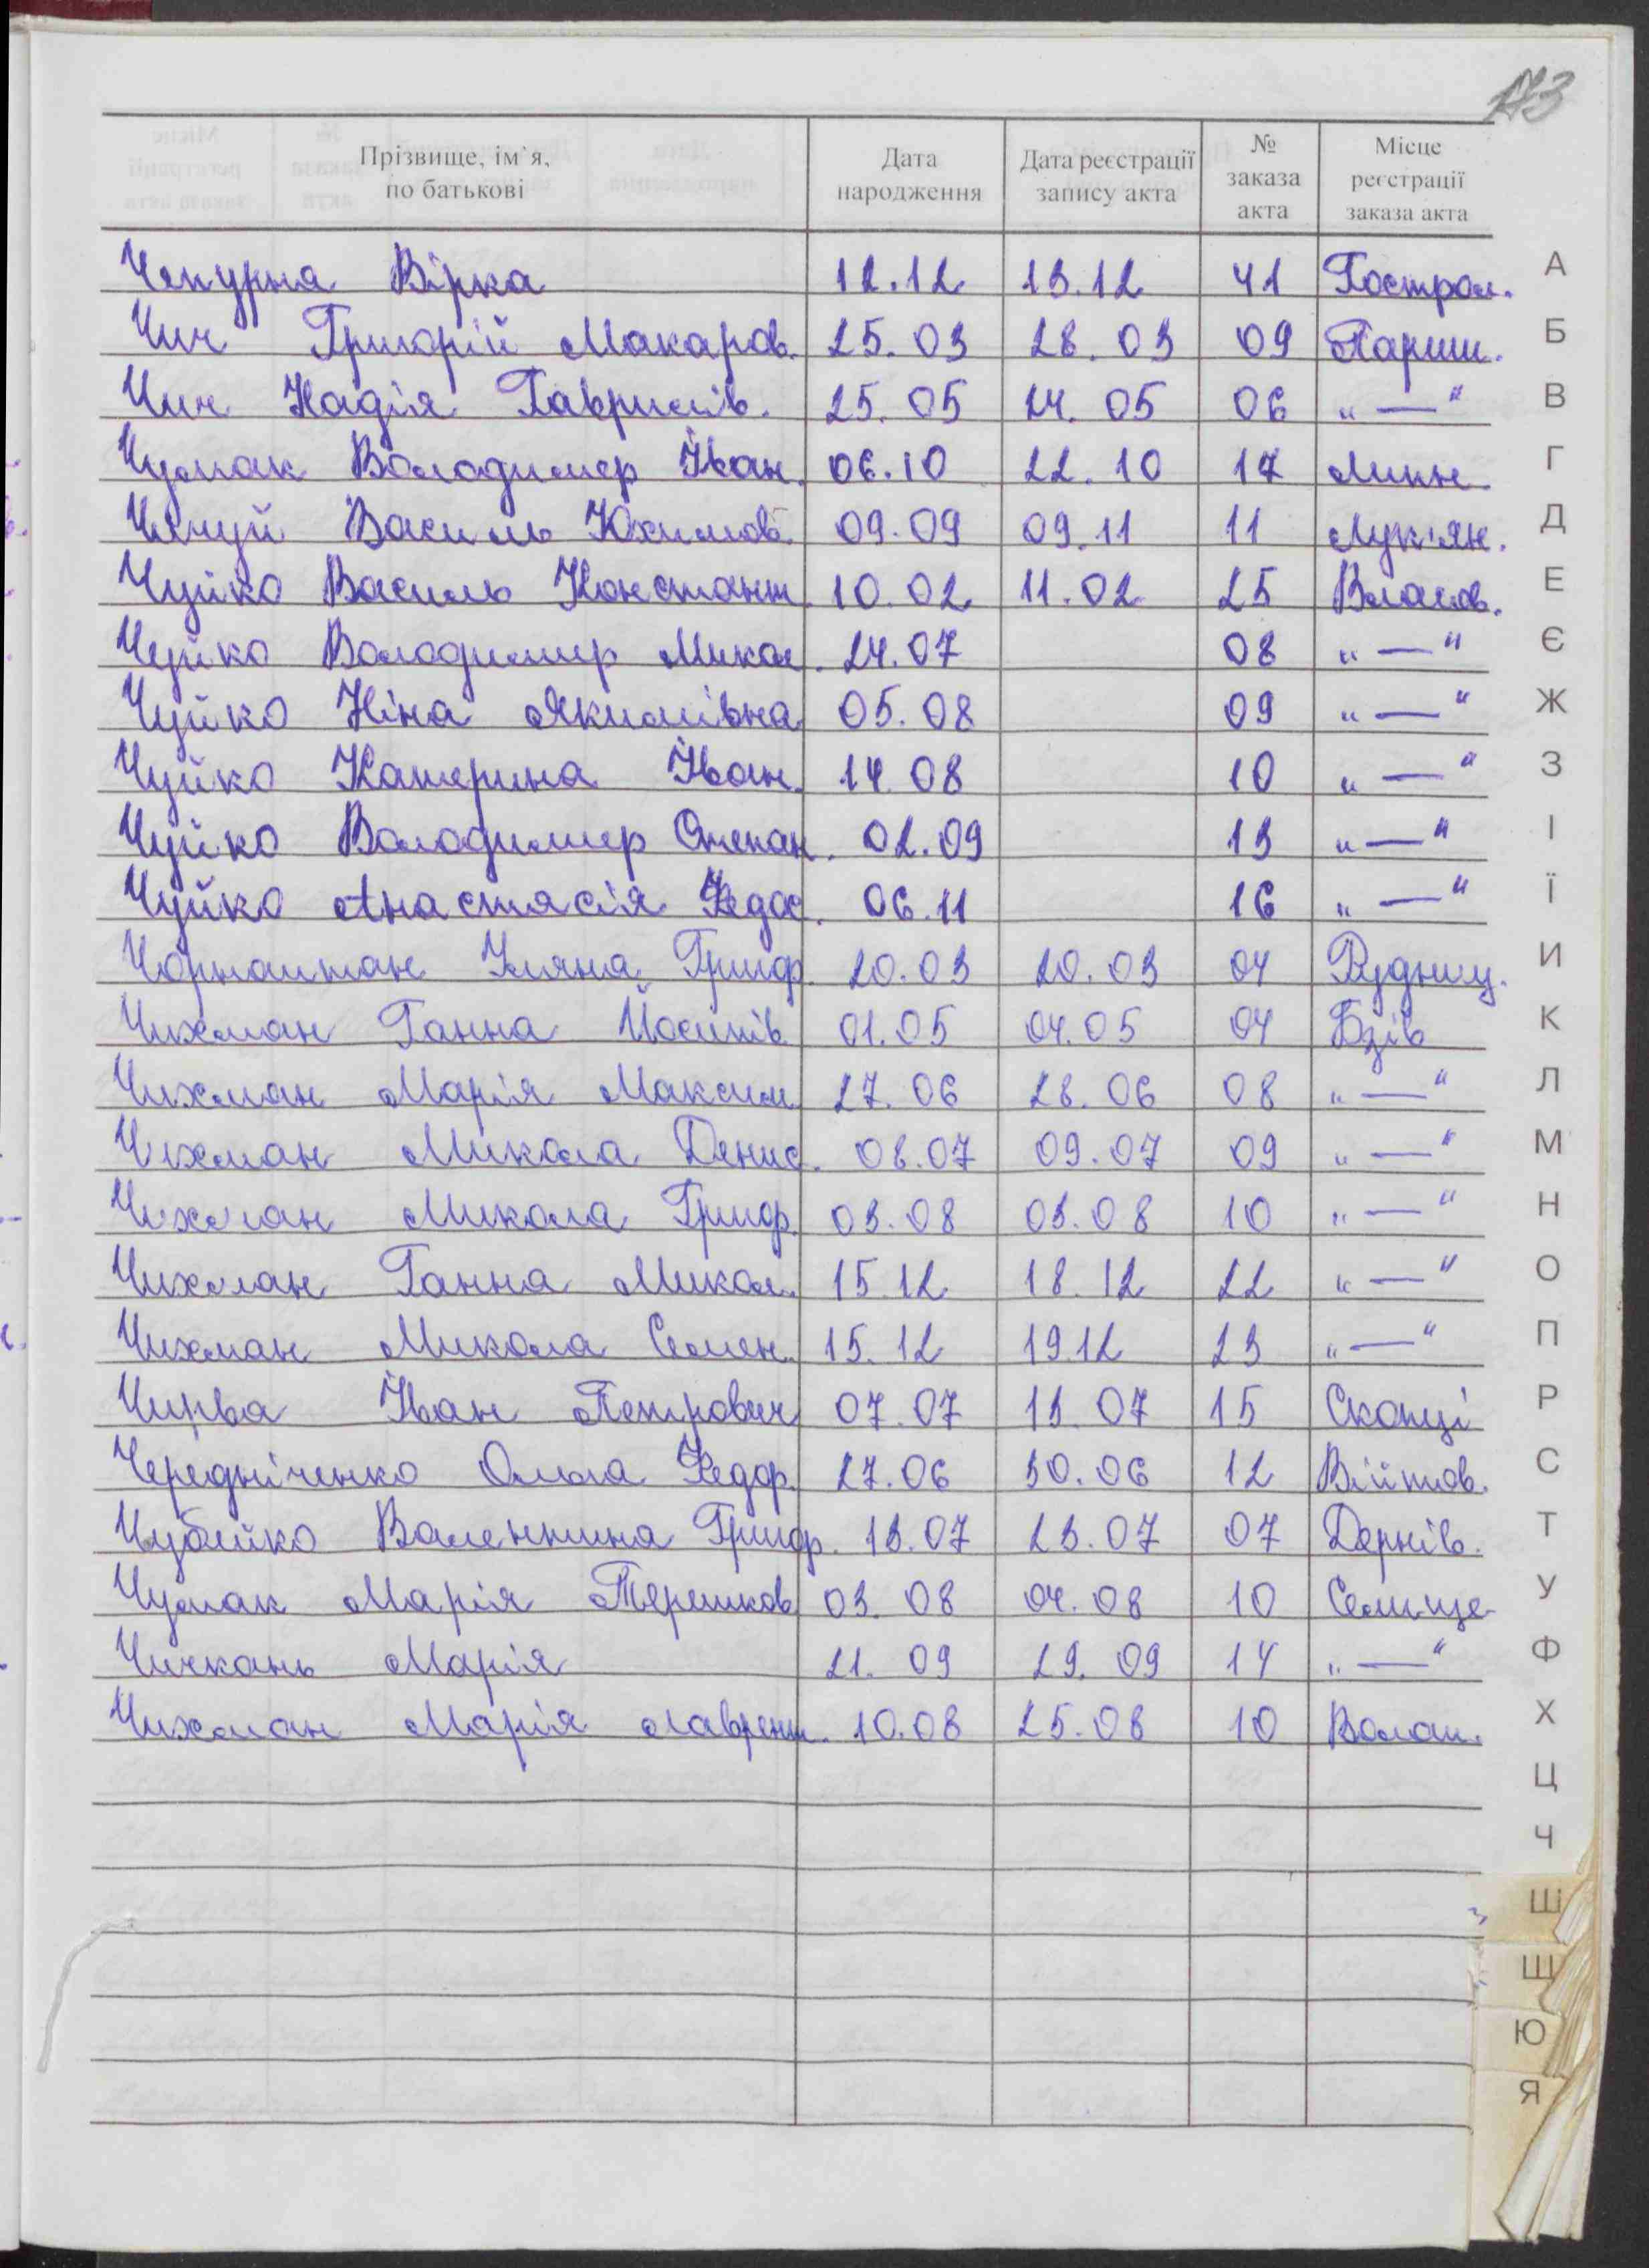 173
Прізвище, ім`я, по батькові Дата народження Дата реєстрації запису акта № заказа акта Місце реєстрації заказа акта
Чепурна Вірка 12.12 13.12 41 Гострол.
Чич Григорій Макаров. 25.03 28.03 09 Париш.
Чич Надія Гаврилів. 25.05 24.05 06 „—“
Чумак Володимер Іван. 06.10 22.10 17 Липн.
Василь Юхимов. 09.09 09.11 11 Лук'ян.
Чуйко Василь Констант. 10.02 11.02 25 Власов.
Чуйко Володимир Микол. 24.07 08 „—“
Чуйко Ніна Якимівна 05.08 09 „—“
Чуйко Катерина Іван. 14.08 10 „—“
Чуйко Володимир Степан. 02.09 13 „—“
Чуйко Анастасія Федос. 06.11 16 „—“
Чорноштан Уляна Григор. 20.03 20.03 04 Рудниц.
Чихман Ганна Йосипів 01.05 04.05 04 Бзів
Чихман Марія Максим 27.06 28.06 08 „—“
Чихман Микола Денис. 08.07 09.07 09 „—“
Чихман Микола Григор. 03.08 03.08 10 „—“
Чихман Ганна Микол. 15.12 18.12 22 „—“
Чихман Микола Семен. 15.12 19.12 23 „—“
Чирва Іван Петрович 07.07 13.07 15 Скопці
Чередніченко Ольга Федор. 27.06 30.06 12 Війтов.
Чубейко Валентина Григор. 13.07 23.07 07 Дернів.
Чумак Марія Терешков 03.08 04.08 10 Селище
Чичкань Марія 21.09 29.09 14 „—“
Чихман Марія Лаврент. 10.08 25.08 10 Волош.
А
Б
В
Г
Д
Е
Є
Ж
З
І
Ї
И
К
Л
М
Н
О
П
Р
С
Т
У
Ф
Х
Ц
Ч
Ш
Щ
Ю
Я